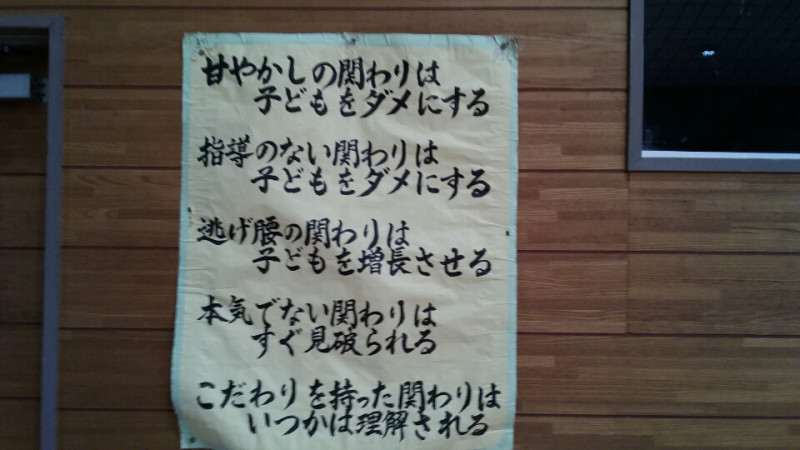 甘やかしの関わりは
子どもをダメにする
指導のない関わりは
子どもをダメにする
逃げ腰の関わりは
子どもを増長させる
本気でない関わりは
すぐ見破られる
こだわりを持った関わりは
いつかは理解される